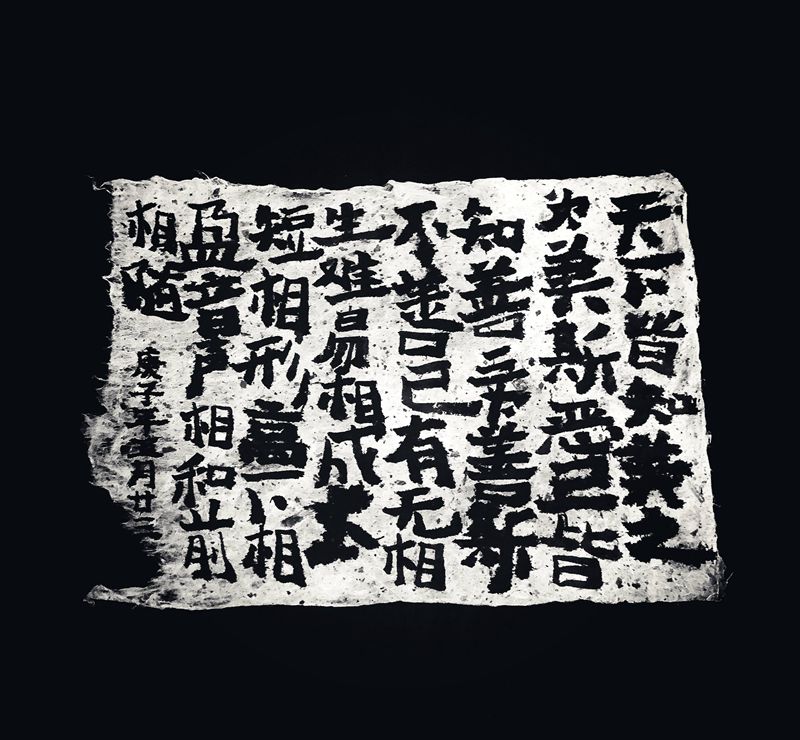 天下皆知美之
为美斯恶已皆
知善之为善斯
不善已有无相
生难易相成长
短相形高下相
盈音声相和前
相随
庚子年月廿三